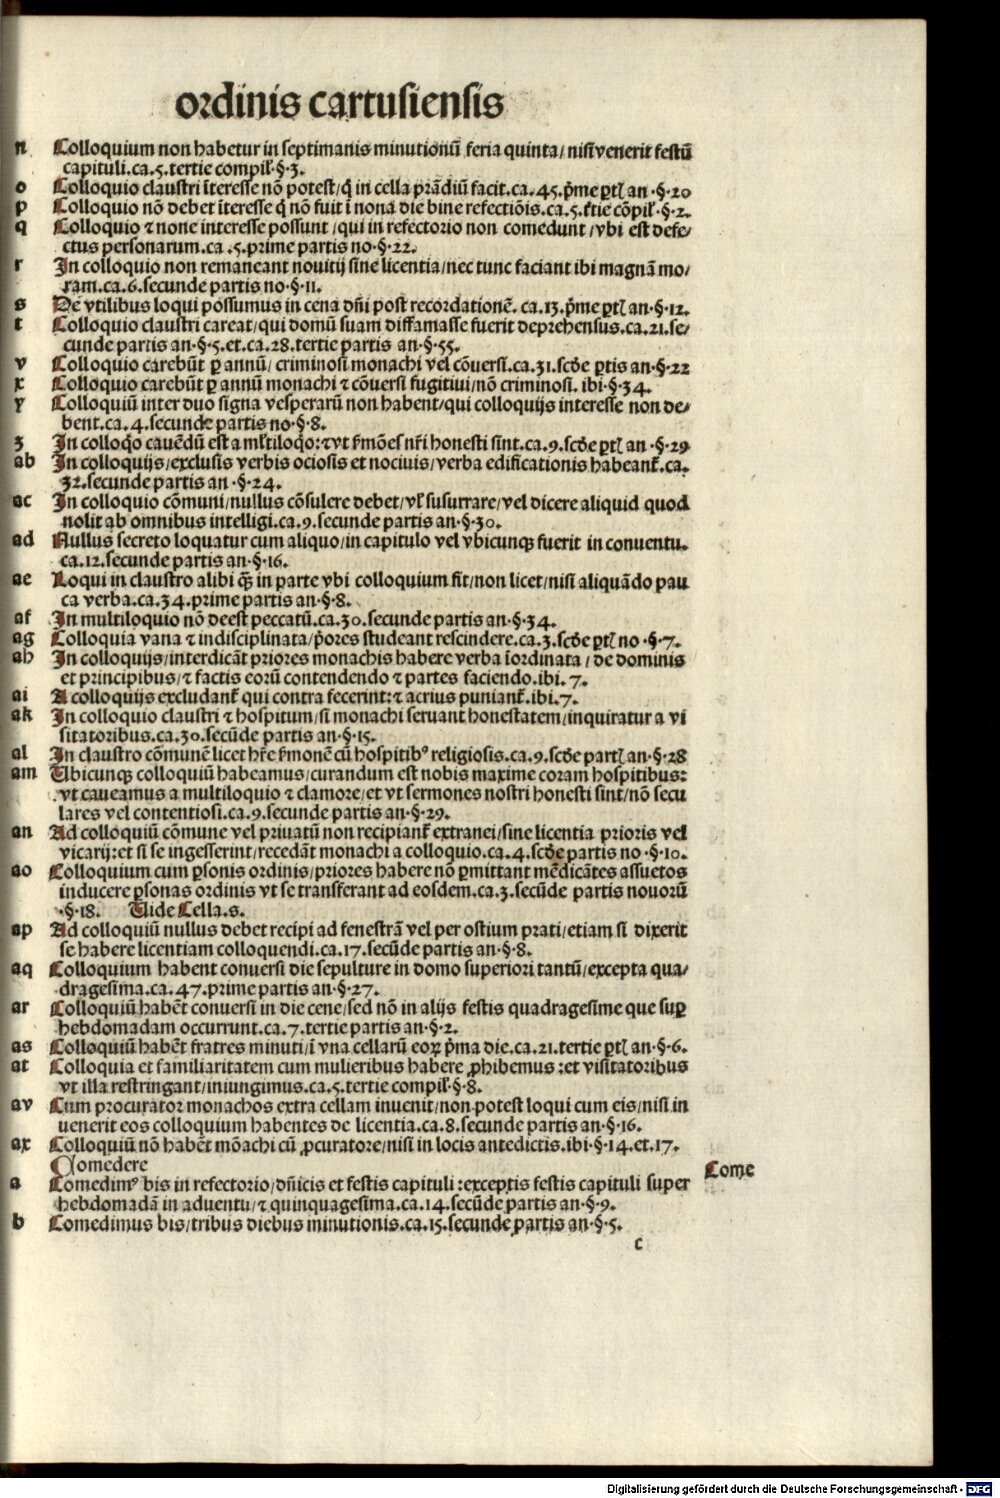 ordinis cartusiensis
n Colloquium non habetur in septimanis minutionũ feria quinta/ nisi venerit festũ
capituli.ca.5.tertie compil'.§.3.
o Colloquio claustri ĩteresse nõ potest/ q̇ in cella prãdiũ facit.ca.45.p̃me ptĩ an.§.20
p Colloquio nõ debet ĩteresse q̇ nõ fuit ĩ nona die bine refectiõis.ca.5.t̃tie cõpil'.§.2.
q Colloquio ⁊ none interesse possunt /qui in refectorio non comedunt /vbi est defe/
ctus personarum.ca.5.prime partis no.§.22.
r In colloquio non remaneant nouitij sine licentia/nec tunc faciant ibi magnã mo/
ram.ca.6.secunde partis no.§.11.
s De vtilibus loqui possumus in cena dñi post recordationẽ. ca.13.p̃me ptĩ an.§.12.
t Colloquio claustri careat/qui domũ suam diffamasse fuerit deprehensus.ca.21.se/
cunde partis an.§.5.et.ca.28.tertie partis an.§.55.
v Colloquio carebũt ꝑ annũ/ criminosi monachi vel cõuersi.ca.31.scd̃e ꝑtis an.§.22
x Colloquio carebũt ꝑ annũ monachi ⁊ cõuersi fugitiui/nõ criminosi. ibi.§.34.
y Colloquiũ inter duo signa vesperarũ non habent/qui colloquijs interesse non de/
bent.ca.4.secunde partis no.§.8.
z In colloq̇o cauẽdũ est a ml'tiloq̇o:⁊vt s̃mões nr̃i honesti sint.ca.9.scd̃e ptĩ an.§.29
ab In colloquijs/exclusis verbis ociosis et nociuis/verba edificationis habeant᷑.ca.
32.secunde partis an.§.24.
ac In colloquio cõmuni/nullus cõsulere debet/vl' susurrare/vel dicere aliquid quod
nolit ab omnibus intelligi.ca.9.secunde partis an.§.30.
ad Nullus secreto loquatur cum aliquo/in capitulo vel vbicunqꝫ fuerit in conuentu.
ca.12.secunde partis an.§.16.
ae Loqui in claustro alibi q̃ꝫ in parte vbi colloquium fit/non licet/nisi aliquãdo pau
ca verba.ca.34.prime partis an.§.8.
af In multiloquio nõ deest peccatũ.ca.30.secunde partis an.§.34.
ag Colloquia vana ⁊ indisciplinata/p̃ores studeant rescindere.ca.3.scd̃e ptĩ no.§.7.
ah In colloquijs/interdicãt priores monachis habere verba ĩordinata / de dominis
et principibus/⁊ factis eorũ contendendo ⁊ partes faciendo.ibi.7.
ai A colloquijs excludant᷑ qui contra fecerint:⁊ acrius puniant᷑.ibi.7.
ak In colloquio claustri ⁊ hospitum/si monachi seruant honestatem/inquiratur a vi
sitatoribus.ca.30.secũde partis an.§.15.
al In claustro cõmunẽ licet hr̃e s̃monẽ cũ hospitibꝰ religiosis.ca.9.scd̃e partĩ an.§.28
am Ubicunqꝫ colloquiũ habeamus/curandum est nobis maxime coram hospitibus:
vt caueamus a multiloquio ⁊ clamore/et vt sermones nostri honesti sint/nõ secu
lares vel contentiosi.ca.9.secunde partis an.§.29.
an Ad colloquiũ cõmune vel priuatũ non recipiant᷑ extranei/sine licentia prioris vel
vicarij:et si se ingesserint/recedãt monachi a colloquio.ca.4.scd̃e partis no.§.10.
ao Colloquium cum ꝑsonis ordinis/priores habere nõ ꝑmittant mẽdicãtes assuetos
inducere ꝑsonas ordinis vt se transferant ad eosdem.ca.3.secũde partis nouorũ
.§.18. Uide Cella.s.
ap Ad colloquiũ nullus debet recipi ad fenestrã vel per ostium prati/etiam si dixerit
se habere licentiam colloquendi.ca.17.secũde partis an.§.8.
aq Colloquium habent conuersi die sepulture in domo superiori tantũ/excepta qua/
dragesima.ca.47.prime partis an.§.27.
ar Colloquiũ habẽt conuersi in die cene/sed nõ in alijs festis quadragesime que suꝑ
hebdomadam occurrunt.ca.7.tertie partis an.§.2.
as Colloquiũ habẽt fratres minuti/ĩ vna cellarũ eoꝝ p̃ma die.ca.21.tertie ptĩ an.§.6.
at Colloquia et familiaritatem cum mulieribus habere ꝓhibemus:et visitatoribus
vt illa restringant/iniungimus.ca.5.tertie compil'.§.8.
av Cum procurator monachos extra cellam inuenit/non potest loqui cum eis/nisi in
uenerit eos colloquium habentes de licentia.ca.8.secunde partis an.§.16.
ax Colloquiũ nõ habẽt mõachi cũ ꝓcuratore/nisi in locis antedictis.ibi.§.14.et.17.
Comedere
Come
a Comedimꝰ bis in refectorio/dñicis et festis capituli:exceptis festis capituli super
hebdomadã in aduentu/⁊ quinquagesima.ca.14.secũde partis an.§.9.
b Comedimus bis/tribus diebus minutionis.ca.15.secunde partis an.§.5.
c
Digitalisierung gefördert durch die Deutsche Forschungsgemeinschaft - DFG